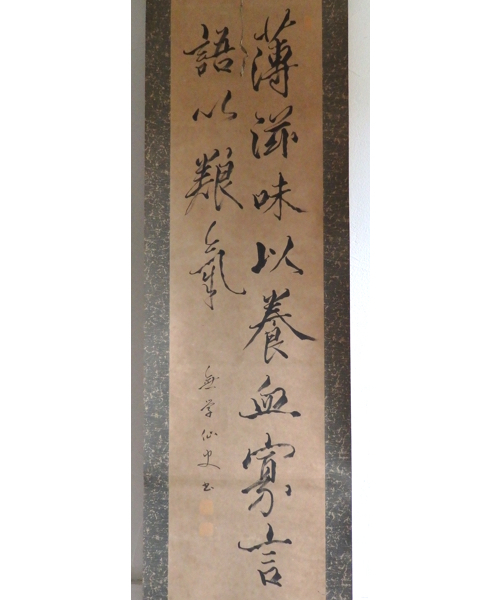 薄滋味以養血寡言
語以氣
無学仙史書